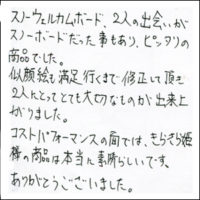 スノーウェルカムボード、2人の出会いが
スノーボードだった事もあり、ピッタリの
商品でした。
似顔絵も満足行くまで修正して頂き
2人にとってとても大切なものが出来上
がりました。
コストパフォーマンスの面では、きらきら姫
様の商品は本当に素晴らしいです。
ありがとうございました。